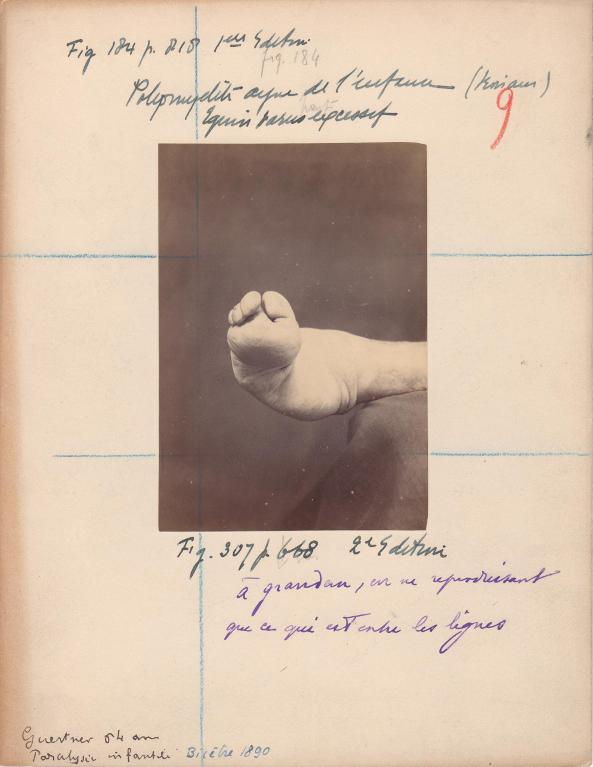 Fig 184 p. 818 1ere Edition
fig. 184
Poliomyélite aigue de l'enfance
haut
Equin varus excessif
9
Fig. 307 p. 668 2e Edition
à grandeur, en ne reproduisant
que ce qui est entre les lignes
Guertner 54 ans
Paralysie infantile Bicêtre 1890